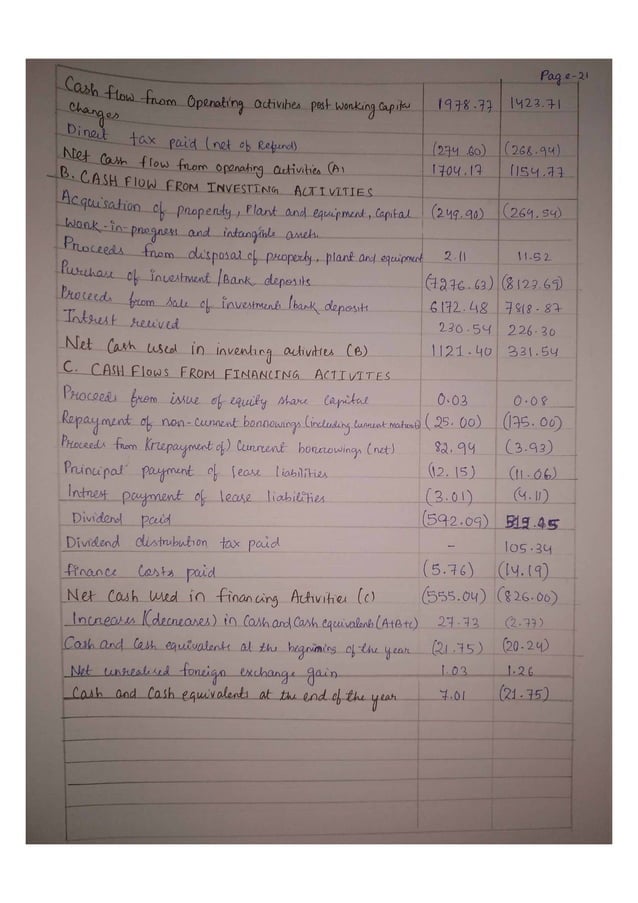 Page-21
Cash flow from Operating activities post working Capital 1978.77 1423.71
Changes
Direct tax paid (net of Refund) (274.60) (268.94)
Net Cash flow from operating activities (A) 1704.17 1154.77
B. CASH FLOW FROM INVESTING ACTIVITIES
Acquisation of property, Plant and equipment, Capital (249.90) (269.54)
work-in-progress and intangible assets
Proceeds from disposal of property, plant and equipment 2.11 11.52
Purchase of investment / Bank deposits (7276.63) (8123.69)
Proceeds from sale of investments / bank deposits 6172.48 7818.87
Intrest received 230.54 226.30
Net Cash used in inventing activities (B) 1121.40 331.54
C. CASH FLOWS FROM FINANCING ACTIVITES
Proceeds from issue of equity share Capital 0.03 0.08
Repayment of non-current borrowings (including current (25.00) (175.00)
Proceeds from (repayment of) Current borrowings (net) 82.94 (3.93)
Principal payment of lease liabilities (12.15) (11.06)
Intrest payment of lease liabilities (3.01) (4.11)
Dividend paid (592.09)
Dividend distribution tax paid - 105.34
finance Costs paid (5.76) (14.19)
Net Cash used in financing Activities (c) (555.04) (826.00)
Increases /(decreases) in Cash and Cash equivalents (A+B+c) 27.73 (2.77)
Cash and Cash equivalents at the beginning of the year (21.75) (20.24)
Net unrealised foreign exchange gain 1.03 1.26
Cash and Cash equivalents at the end of the year 7.01 (21.75)